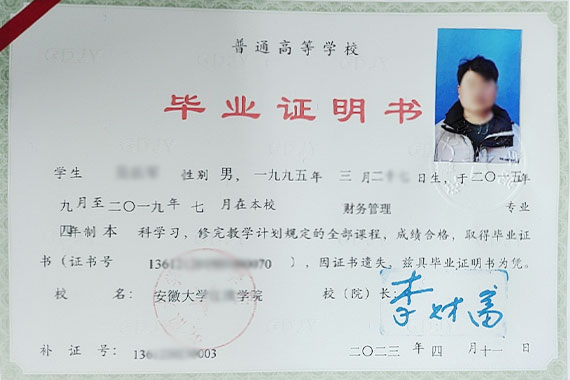 普通高等学校
毕业证明书
学生 性别 男，一九九五年 三月二十七日生，于二〇一五年
九月至二〇一九年 七 月在本校 财务管理 专业
四年制 本 科学习，修完教学计划规定的全部课程，成绩合格，取得毕业证
书（证书号 136 0070 ），因证书遗失，兹具毕业证明书为凭。
校 名： 安徽大学 学院 校（院）长：
补 证 号： 136 003 二〇二三 年 四 月 十一 日